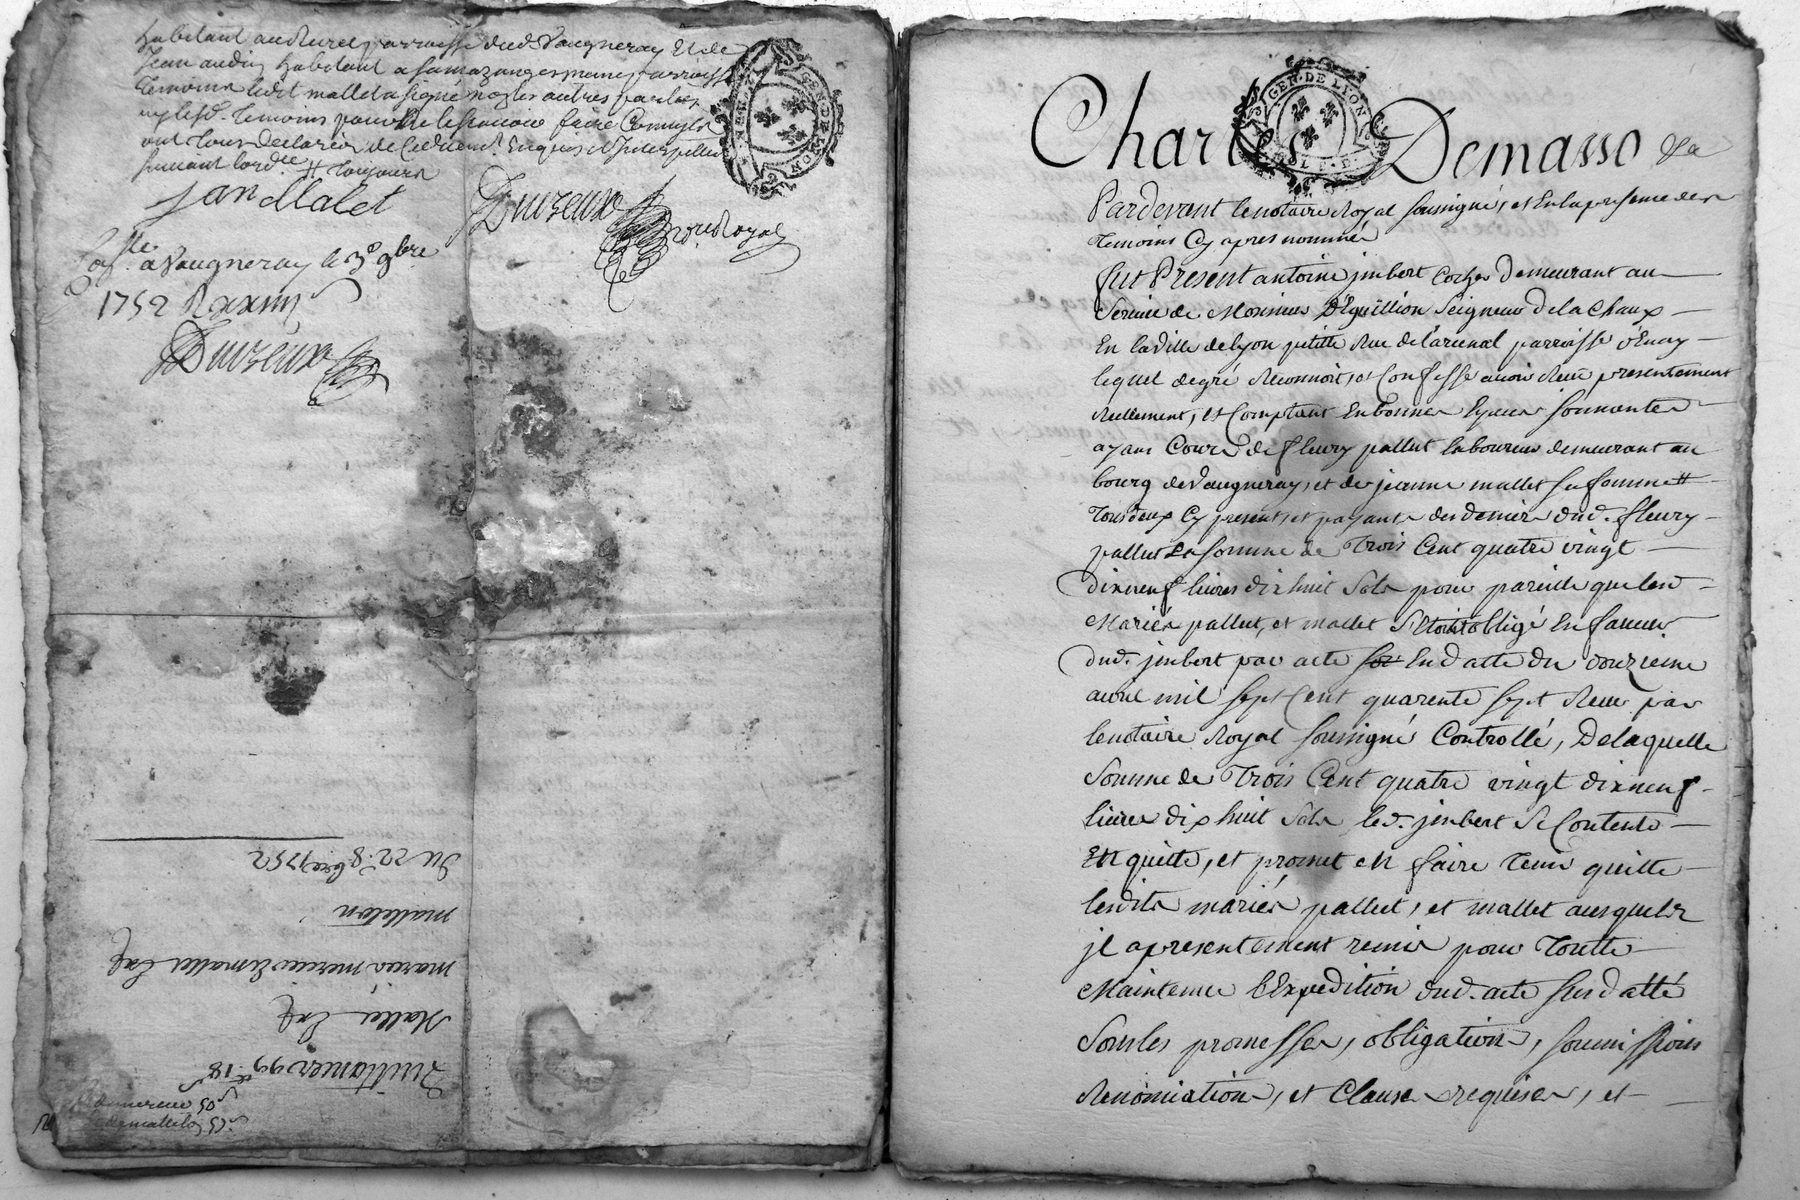 habitant audit lieu parroisse dud. Vaugneray Et de
Jean audin habitant a
Temoins ledit mallet a signé non les autres parties
ny lesd. Temoins pour ne le scavoir faire Comm'ils
ont Tous declarés de Ce duement Enquis et Interpellés
suivant lord.ce # Toujours
Jan Malet
Duvzeux
nore Royal
GEN·DE·LYON
a Vaugneray le 3e 9bre
1752
Duvzeux
Du 22e 8bre 1752
matelon
mariés mercier Et mallet
Mallet
Quittance 99 # 18 s
50 s
55 s
GEN·DE·LYON
Charles Demasso
Pardevant le notaire Royal soussigné, et En la presence des
Temoins Cy apres nommés
fut Present antoine jmbert Cocher demeurant au
Service de Monsieur D'Eguillion Seigneur de la Chaux
En la Ville de lyon petitte Rue de l'arcenal parroisse d'Enay
lequel de gré Reconnoit, et Confesse avoir Receu presentement
Reellement, et Comptant En bonnes Especes sonnantes
ayans Cours de fleury pallut laboureur demeurant au
bourg de Vaugneray, et de jeanne mallet sa femme #
Tous deux Cy presents, et payants des deniers dud. fleury
pallut La somme de Trois Cent quatre vingt
dix neuf livres dix huit Sols pour pareille que les d
Mariés pallut, et mallet s'Etoint obligé En faveur
dud. jmbert par acte En datte du douzieme
avril mil sept Cent quarente sept Receu par
le notaire Royal soussigné Controllé, De laquelle
Somme de Trois Cent quatre vingt dix neuf
livres dix huit Sols led. jmbert se Contente
En quitte, et promet En faire Tenir quitte
lesdits mariés pallut, et mallet ausquels
jl a presentement remis pour Toutte
Maintenue l'Expedition dud. acte sus datté
Sous les promesses, obligations, soumissions
Renonciations, et Clauses requises, et